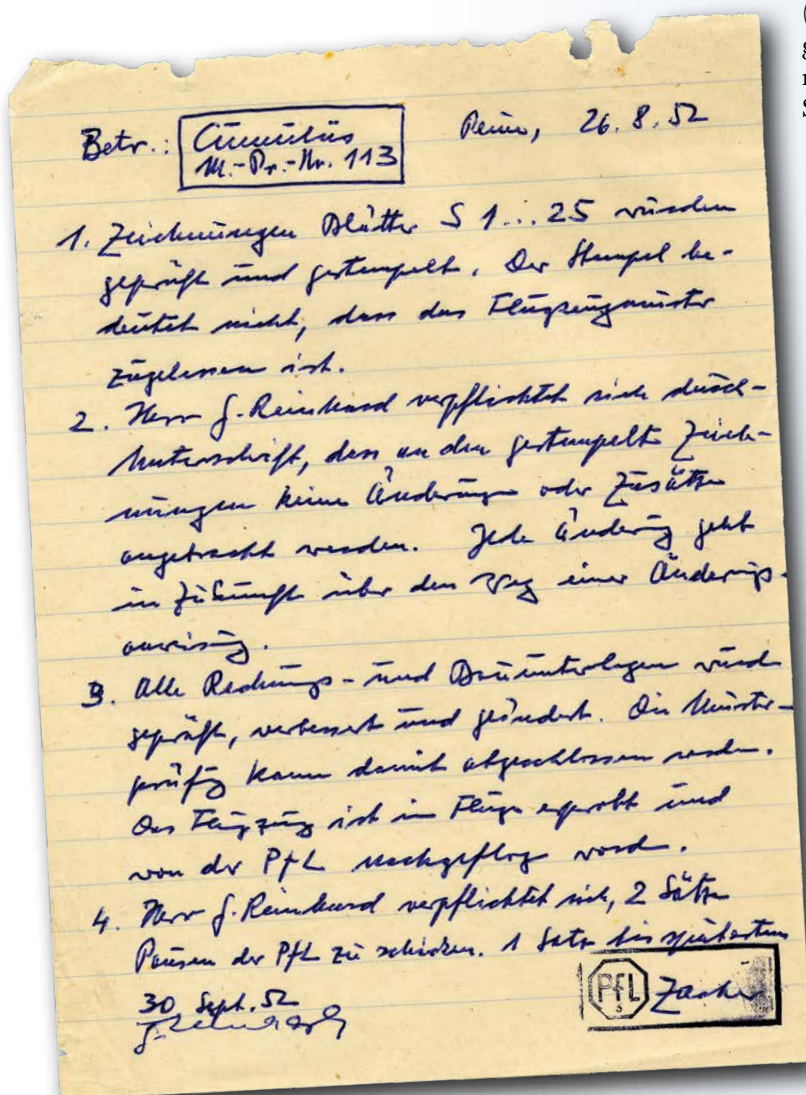 Betr.: Cumulus Peine, 26.8.52
M.-Pr.-Nr. 113
1. Zeichnungen Blätter S 1...25 wurden
geprüft und gestempelt. Der Stempel be-
deutet nicht, dass das Flugzeugmuster
zugelassen ist.
2. Herr G. Reinhard verpflichtet sich durch
Unterschrift, dass an den gestempelten Zeich-
nungen keine Änderungen oder Zusätze
angebracht werden. Jede Änderung geht
in Zukunft über den Weg einer Änderungs-
anweisung.
3. Alle Rechnungs- und Bauunterlagen wurden
geprüft, verbessert und geändert. Die Muster-
prüfung kann damit abgeschlossen werden.
Das Flugzeug ist im Fluge erprobt und
von der PfL nachgeflogen worden.
4. Herr G. Reinhard verpflichtet sich, 2 Sätze
Pausen der PfL zu schicken. 1 Satz bis spätestens
30 Sept. 52
G. Reinhard
PfL
Zacher